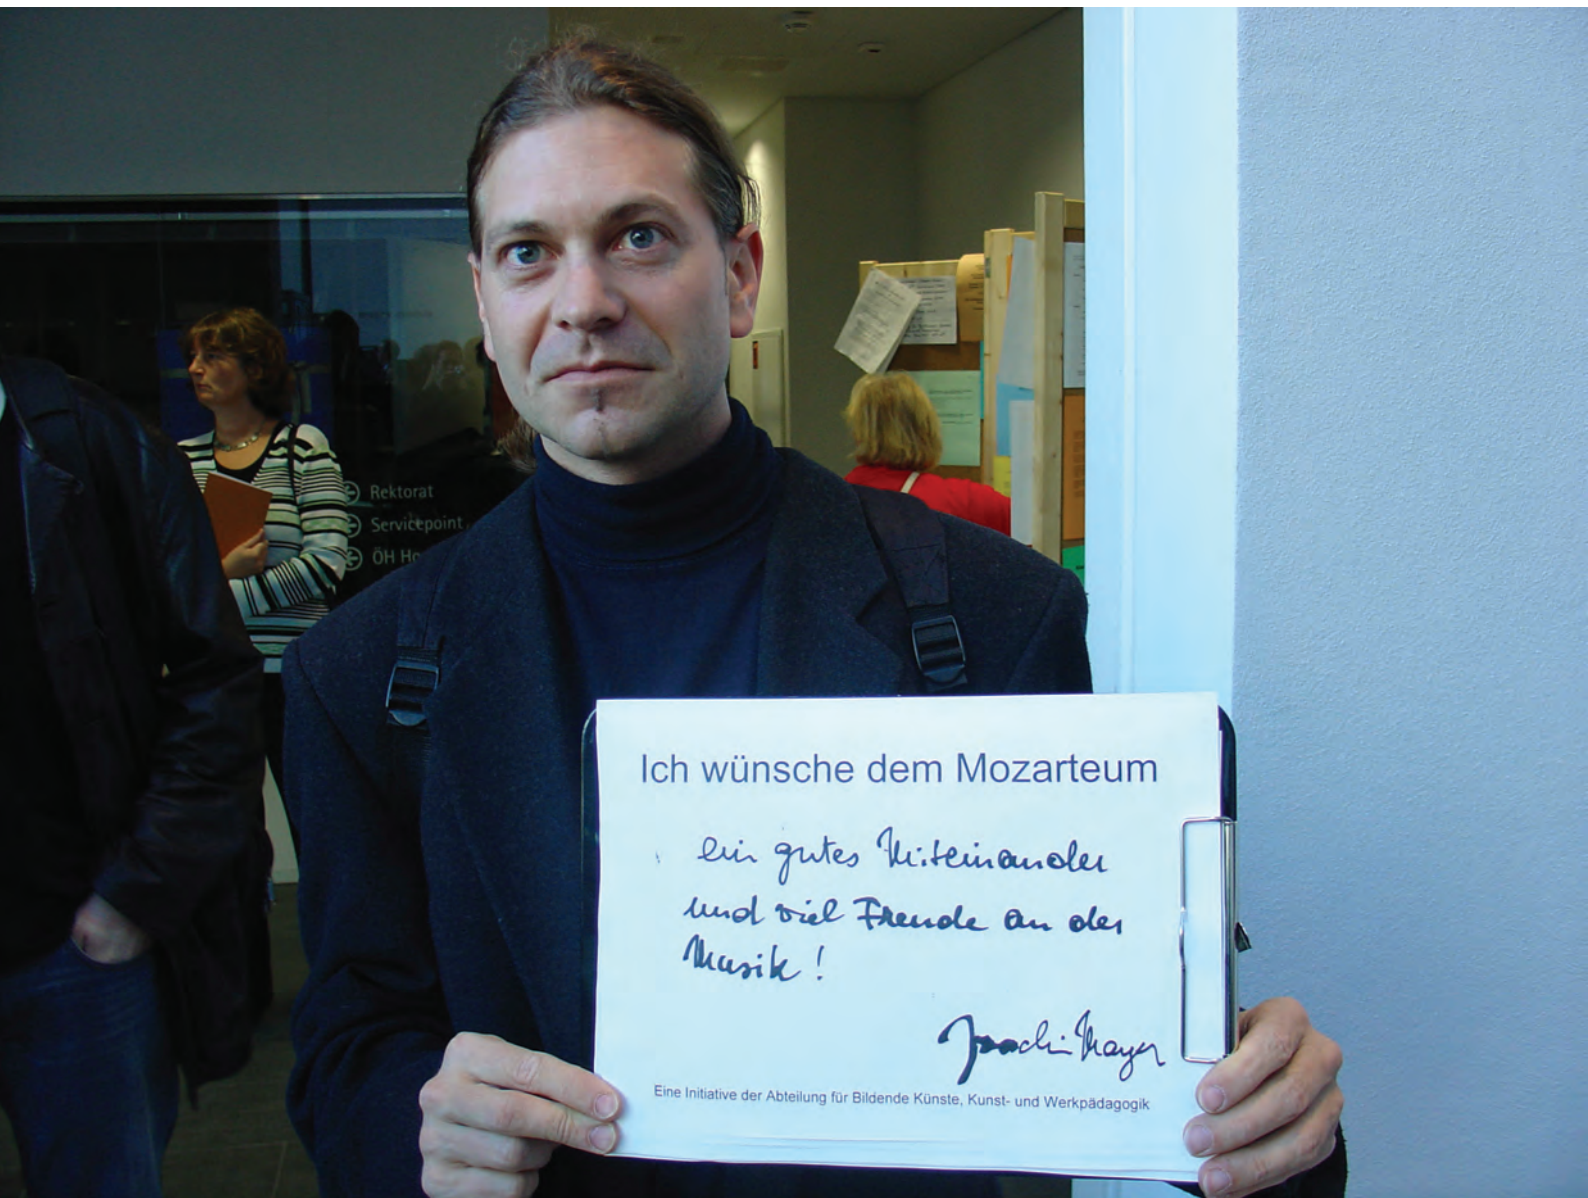 Rektorat
Servicepoint
ÖH
Ich wünsche dem Mozarteum
ein gutes Miteinander
und viel Freude an der
Musik!
Joachim Mayer
Eine Initiative der Abteilung für Bildende Künste, Kunst- und Werkpädagogik